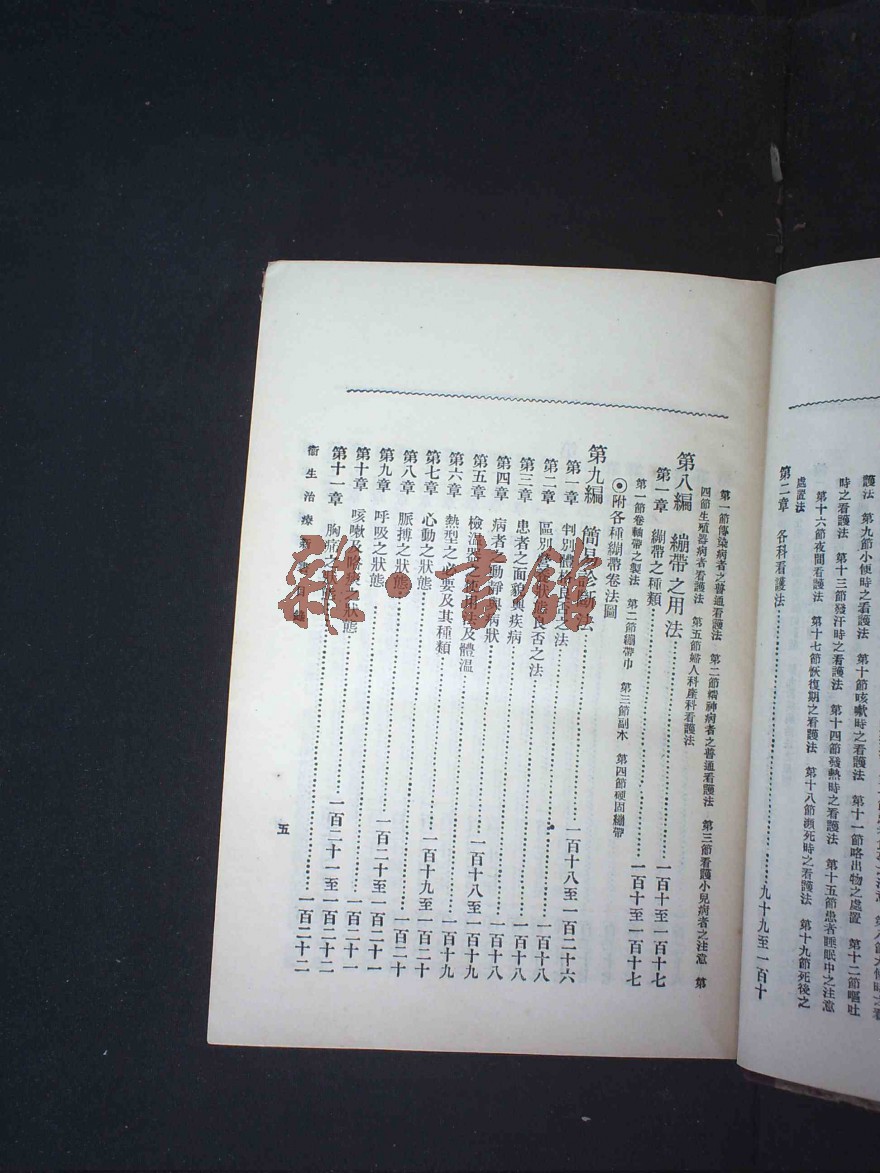 護法　第九節小便時之看護法　第十節咳嗽時之看護法　第十一節咯出物之處置　第十二節嘔吐
時之看護法　第十三節發汗時之看護法　第十四節發熱時之看護法　第十五節患者睡眠中之注意
第十六節夜間看護法　第十七節恢復期之看護法　第十八節瀕死時之看護法　第十九節死後之
處置法
第二章　各科看護法……九十九至一百十
第一節傳染病者之普通看護法　第二節精神病者之普通看護法　第三節看護小兒病者之注意　第
四節生殖器病者看護法　第五節婦人科產科看護法
第八編　繃帶之用法……一百十至一百十七
第一章　繃帶之種類……一百十至一百十七
第一節卷軸帶之製法　第二節繃帶巾　第三節副木　第四節硬固繃帶
◉附各種繃帶卷法圖
第九編　簡易診斷法……一百十八至一百二十六
第一章　判別體格良否之法……一百十八
第二章　區別營養狀態良否之法……一百十八
第三章　患者之面貌與疾病……一百十八
第四章　病者之動靜與病狀……一百十八
第五章　檢溫器之使用法及體溫……一百十八至一百十九
第六章　熱型之必要及其種類……一百十九
第七章　心動之狀態……一百十九至一百二十
第八章　脈搏之狀態……一百二十
第九章　呼吸之狀態……一百二十至一百二十一
第十章　咳嗽及咯痰之狀態……一百二十一
第十一章　胸痛之狀態……一百二十一至一百二十二
……一百二十二
衛生治療新書目錄
五
雜·書館